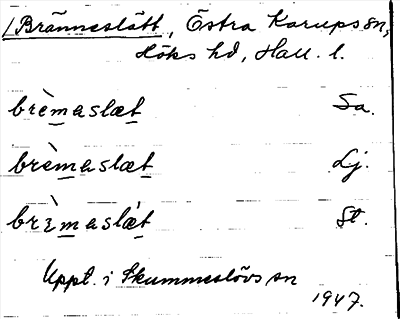 /Bränneslätt, Östra Karups sn,
Höks hd, Hall. l.
brèmaslæt Sa.
brèmaslæt Lj.
brɪ̀maslæ̀t St.
Uppt. i Skummeslövs sn
1947.